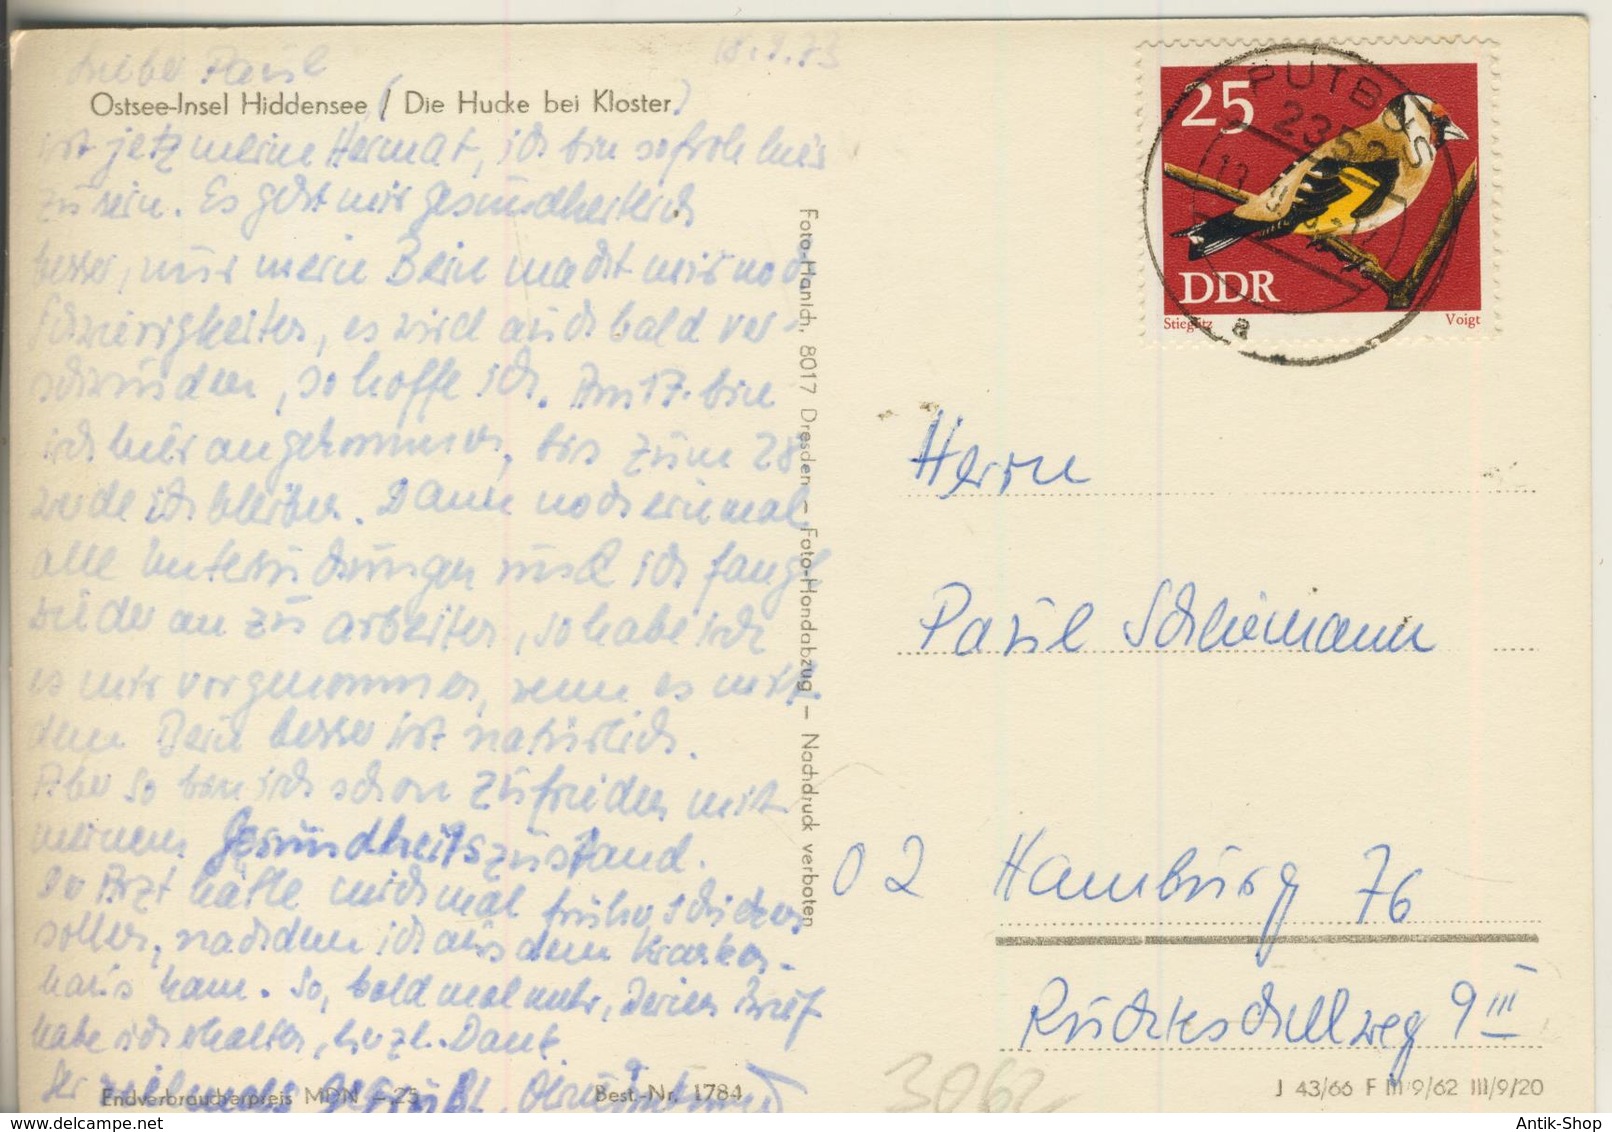 Lieber Paul
18.9.73
Ostsee-Insel Hiddensee / Die Hucke bei Kloster
ist jetz meine Heimat, ich bin so froh hier
zu sein. Es geht mir gesundheitlich
besser, nur mein Bein macht mir noch
Schwierigkeiten, es wird auch bald ver-
schwinden, so hoffe ich. Am 17. bin
ich hier angekommen, bis zum 28
werde ich bleiben. Dann noch einmal
alle Untersuchungen und ich fange
wieder an zu arbeiten, so habe ich
es mir vorgenommen, wenn es mit
dem Bein besser ist natürlich.
Aber so bin ich schon zufrieden mit
meinem Gesundheitszustand.
Der Arzt hätte mich mal früher schicken
sollen, nachdem ich aus dem Kranken-
haus kam. So, bald mal mehr, Deinen Brief
habe ich erhalten, herzl. Dank.
Endverbraucherpreis MDN -,25
Best.-Nr. 1784
Foto-Hanich, 8017 Dresden – Foto-Hondabzug – Nachdruck verboten
25
DDR
Stieglitz
Voigt
PUTBUS
a
Herrn
Paul Schliemann
02 Hamburg 76
Rückteschellweg 9 III
3062
J 43/66 F III/9/62 III/9/20
Antik-Shop